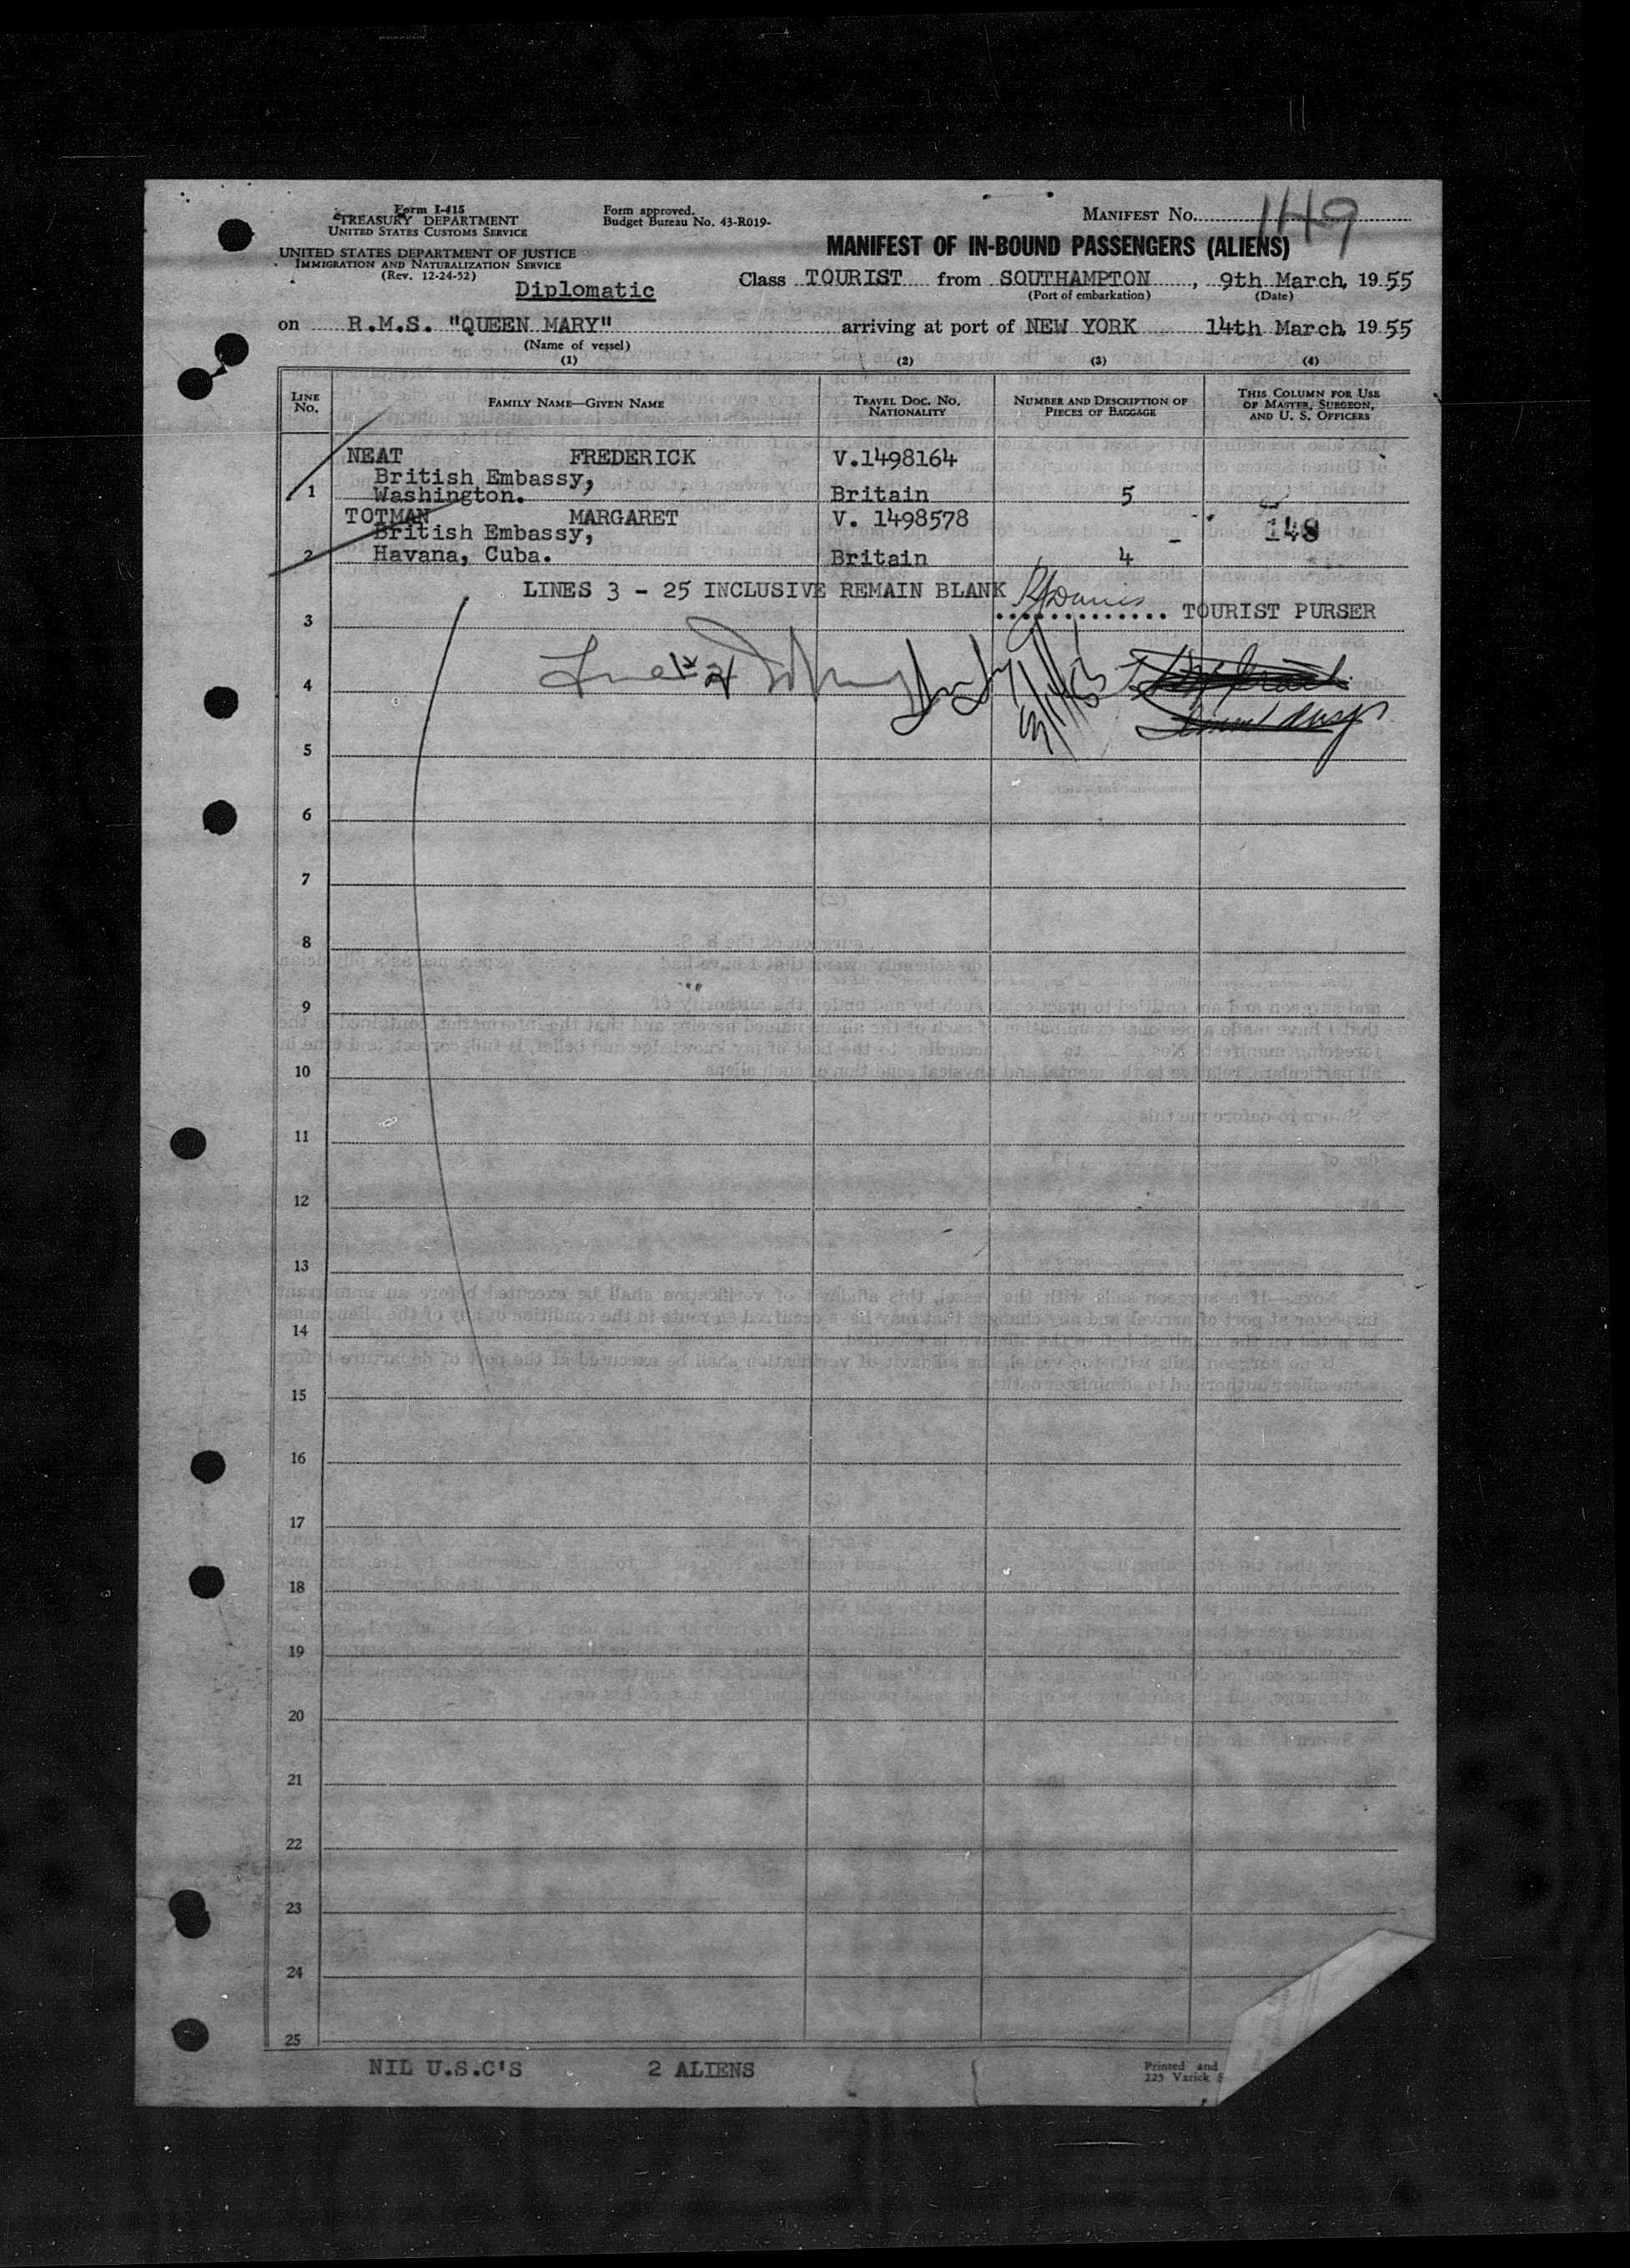 Form I-415
TREASURY DEPARTMENT
UNITED STATES CUSTOMS SERVICE
UNITED STATES DEPARTMENT OF JUSTICE
IMMIGRATION AND NATURALIZATION SERVICE
(Rev. 12-24-52)
Form approved.
Budget Bureau No. 43-R019-
MANIFEST No. 149
MANIFEST OF IN-BOUND PASSENGERS (ALIENS)
Diplomatic
Class TOURIST from SOUTHAMPTON, 9th March, 1955
(Port of embarkation) (Date)
on R.M.S. "QUEEN MARY" arriving at port of NEW YORK 14th March, 1955
(Name of vessel)
(1) (2) (3) (4)
LINE No. FAMILY NAME—GIVEN NAME TRAVEL DOC. No. NATIONALITY NUMBER AND DESCRIPTION OF PIECES OF BAGGAGE THIS COLUMN FOR USE OF MASTER, SURGEON, AND U. S. OFFICERS
NEAT FREDERICK V.1498164
British Embassy,
1 Washington. Britain 5
TOTMAN MARGARET V. 1498578 148
British Embassy,
2 Havana, Cuba. Britain 4
LINES 3 - 25 INCLUSIVE REMAIN BLANK
TOURIST PURSER
3
4
5
6
7
8
9
10
11
12
13
14
15
16
17
18
19
20
21
22
23
24
25
NIL U.S.C'S 2 ALIENS
Printed and
225 Varick S